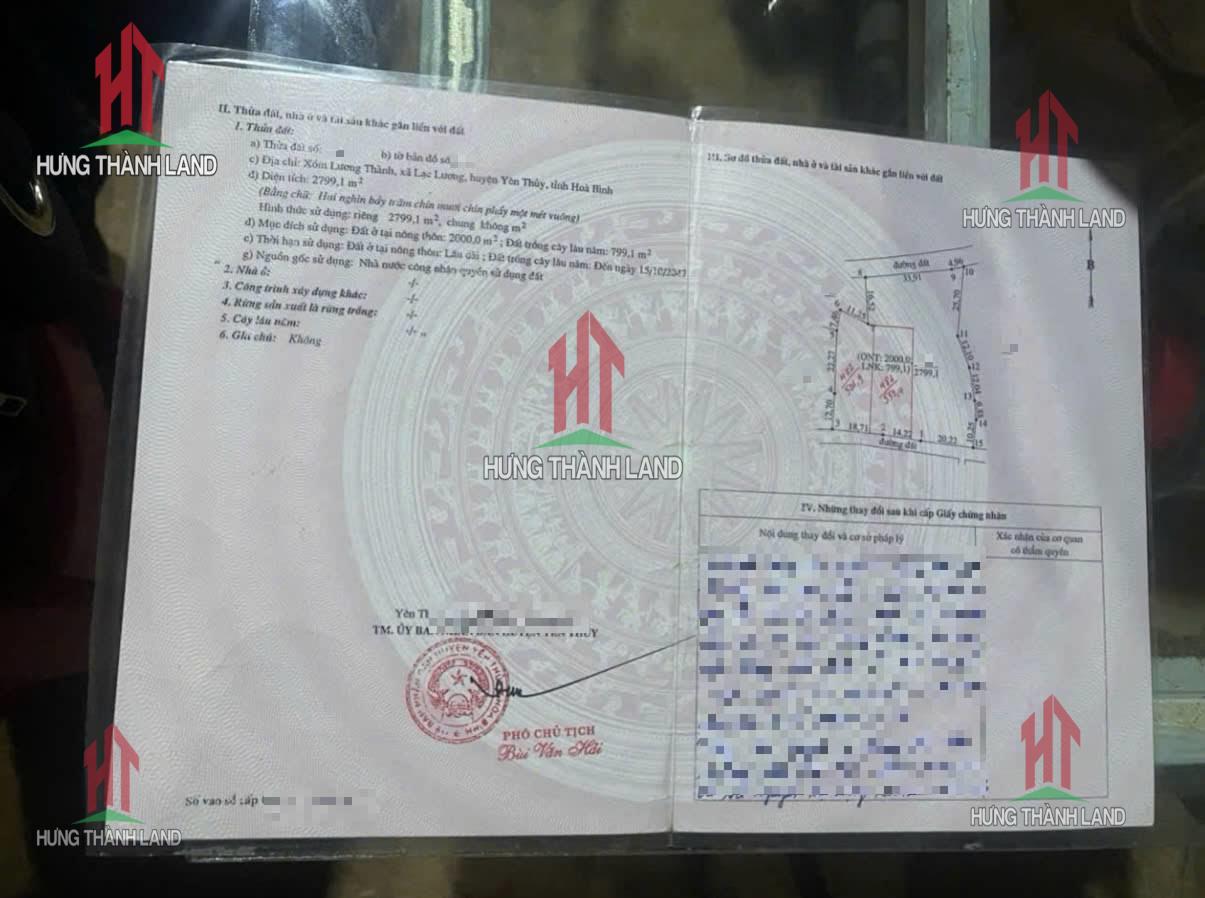 HƯNG THÀNH LAND
II. Thửa đất, nhà ở và tài sản khác gắn liền với đất
1. Thửa đất:
a) Thửa đất số: b) tờ bản đồ số
c) Địa chỉ: Xóm Lương Thành, xã Lạc Lương, huyện Yên Thủy, tỉnh Hoà Bình
d) Diện tích: 2799,1 m²
(Bằng chữ: Hai nghìn bảy trăm chín mươi chín phẩy một mét vuông)
Hình thức sử dụng: riêng 2799,1 m², chung không m²
d) Mục đích sử dụng: Đất ở tại nông thôn: 2000,0 m²; Đất trồng cây lâu năm: 799,1 m²
e) Thời hạn sử dụng: Đất ở tại nông thôn: Lâu dài; Đất trồng cây lâu năm: Đến ngày 15/10/
g) Nguồn gốc sử dụng: Nhà nước công nhận quyền sử dụng đất
2. Nhà ở: -/-
3. Công trình xây dựng khác: -/-
4. Rừng sản xuất là rừng trồng: -/-
5. Cây lâu năm: -/-
6. Ghi chú: Không
Yên
TM. ỦY BA YÊN THỦY
PHÓ CHỦ TỊCH
Bùi Văn Hải
Số vào sổ cấp
III. Sơ đồ thửa đất, nhà ở và tài sản khác gắn liền với đất
HƯNG THÀNH LAND
B
đường đất
33,91
4,96
8
9
10
25,70
11,25
11
12,10
12
12,04
13
14
10,25
15
22,27
4
12,70
3
(ONT: 2000,0;
LNK: 799,1)
2799,1
18,71
2
14,22
1
20,22
đường đất
HƯNG THÀNH LAND
IV. Những thay đổi sau khi cấp Giấy chứng nhận
Nội dung thay đổi và cơ sở pháp lý
Xác nhận của cơ quan
có thẩm quyền
HƯNG THÀNH LAND
HƯNG THÀNH LAND